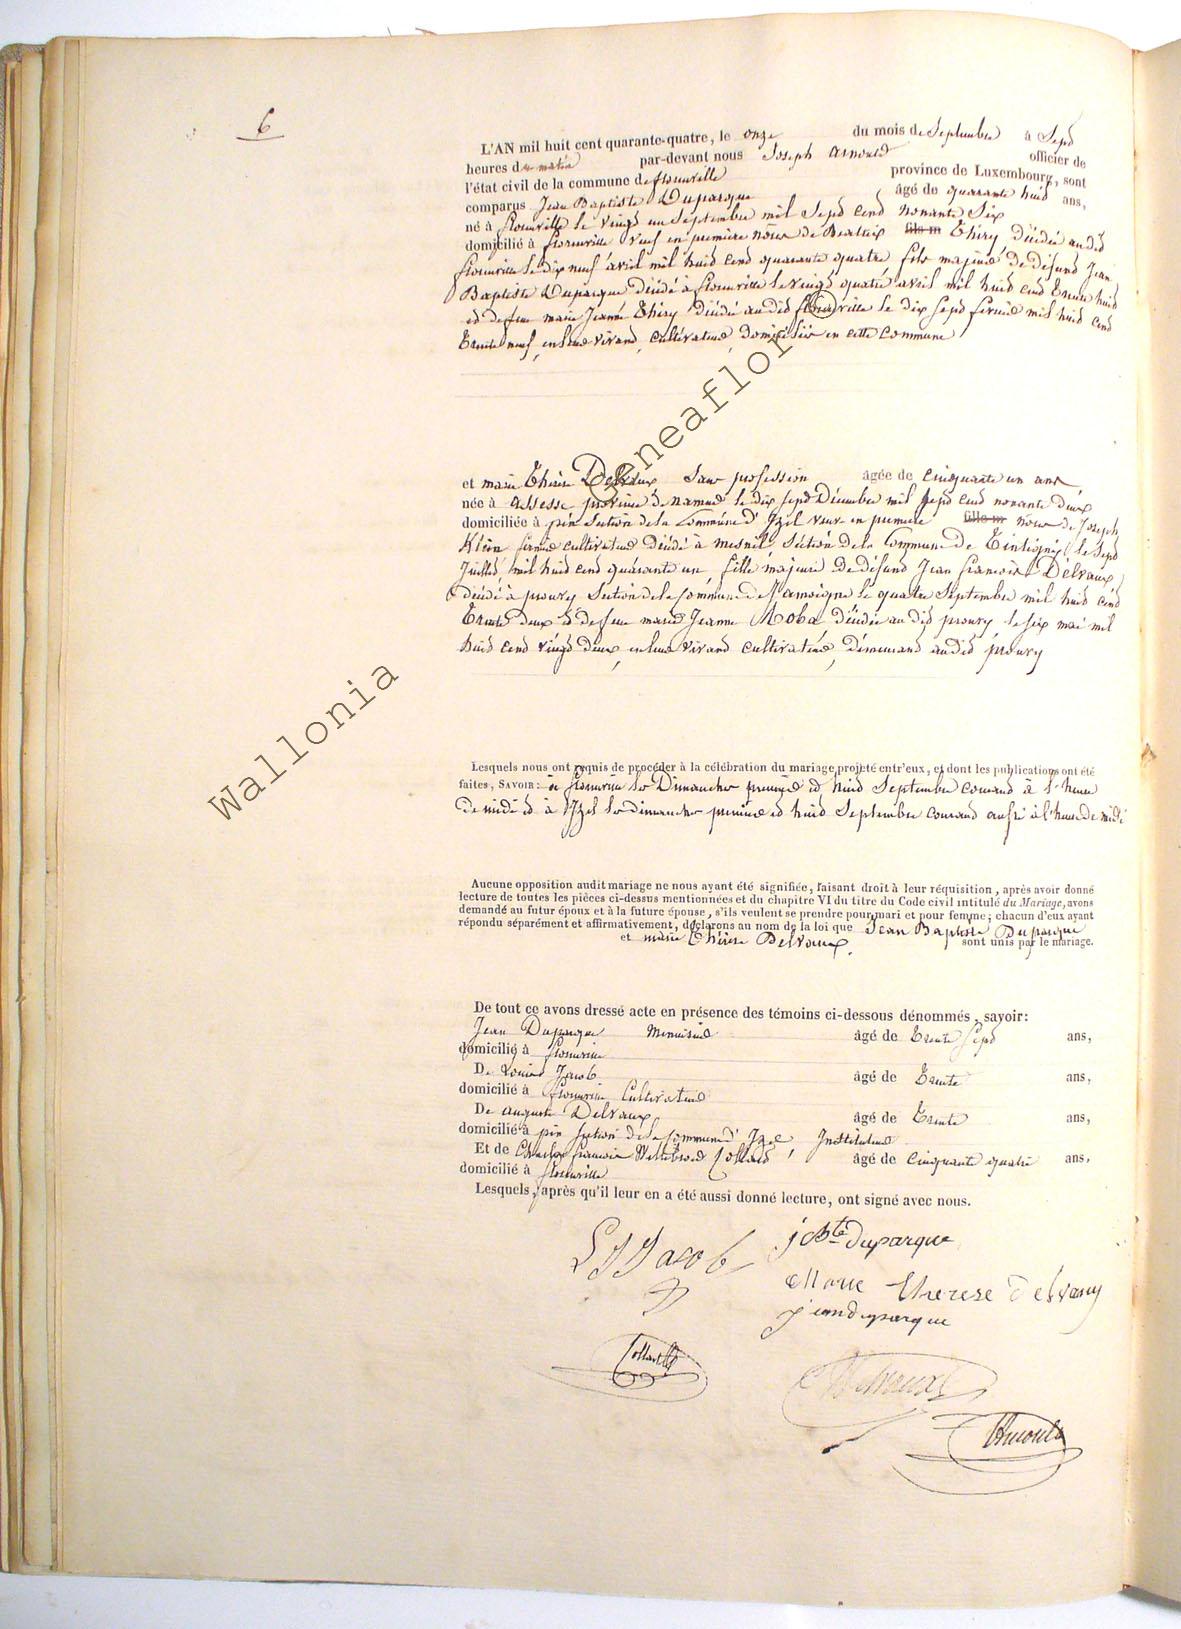 6
L'AN mil huit cent quarante-quatre, le onze du mois de Septembre à Sept
heures du matin par-devant nous Joseph Arnould officier de
l'état civil de la commune de florenville province de Luxembourg, sont
comparus Jean Baptiste Duparque âgé de quarante huit ans,
né à florenville le vingt un Septembre mil Sept cent nonante Six
domicilié à florenville veuf en première nôces de Beatrix fils m Thiry, décédée audit
florenville le dix neuf avril mil huit cent quarante quatre fils majeur de défunt Jean
Baptiste Duparque décédé à florenville le vingt quatre avril mil huit cent trente huit
et defeue marie Jeanne Thiry décédée audit florenville le dix Sept fevrier mil huit cent
trente neuf, en leur vivant, cultivateurs domiciliés en cette commune
et marie Thérèse Delvaux Sans profession âgée de cinquante un ans
née à Assesse province de namur le dix Sept Décembre mil Sept cent nonante deux
domiciliée à pin Section de la Commune d'Izel veuve en premiere fille m nôces de Joseph
Klein fermier cultivateur décédé à mesnil Section de la Commune de Tintigny le Sept
Juillet, mil huit cent quarante un, fille majeure de défunt Jean françois Delvaux
décédé à prouvy Section de la Commune de Jamoigne le quatre Septembre mil huit cent
trente deux et de feue marie Jeanne Roba décédée audit prouvy le six mai mil
huit cent vingt deux, en leur vivant cultivateurs, demeurant audit prouvy
Lesquels nous ont requis de procéder à la célébration du mariage projeté entr'eux, et dont les publications ont été
faites, SAVOIR: à florenville les Dimanches premier et huit Septembre courant à l'heure
de midi et à Izel les dimanches premier et huit Septembre courant aussi à l'heure de midi
Aucune opposition audit mariage ne nous ayant été signifiée, faisant droit à leur réquisition, après avoir donné
lecture de toutes les pièces ci-dessus mentionnées et du chapitre VI du titre du Code civil intitulé du Mariage, avons
demandé au futur époux et à la future épouse, s'ils veulent se prendre pour mari et pour femme; chacun d'eux ayant
répondu séparément et affirmativement, déclarons au nom de la loi que Jean Baptiste Duparque
et marie Thérèse Delvaux sont unis par le mariage.
De tout ce avons dressé acte en présence des témoins ci-dessous dénommés, savoir:
Jean Duparque Menuisier âgé de trente Sept ans,
domicilié à florenville
De Louis Jacob âgé de trente ans,
domicilié à florenville Cultivateur
De auguste Delvaux âgé de trente ans,
domicilié à pin Section de la Commune d'Izel, Instituteur
Et de Charles françois Willebrord Collard âgé de cinquante quatre ans,
domicilié à florenville
Lesquels, après qu'il leur en a été aussi donné lecture, ont signé avec nous.
L J Jacob
j Bte duparque
Marie therese Delvaux
jean duparque
Collard
ADelvaux
JArnould
Wallonia Geneaflor